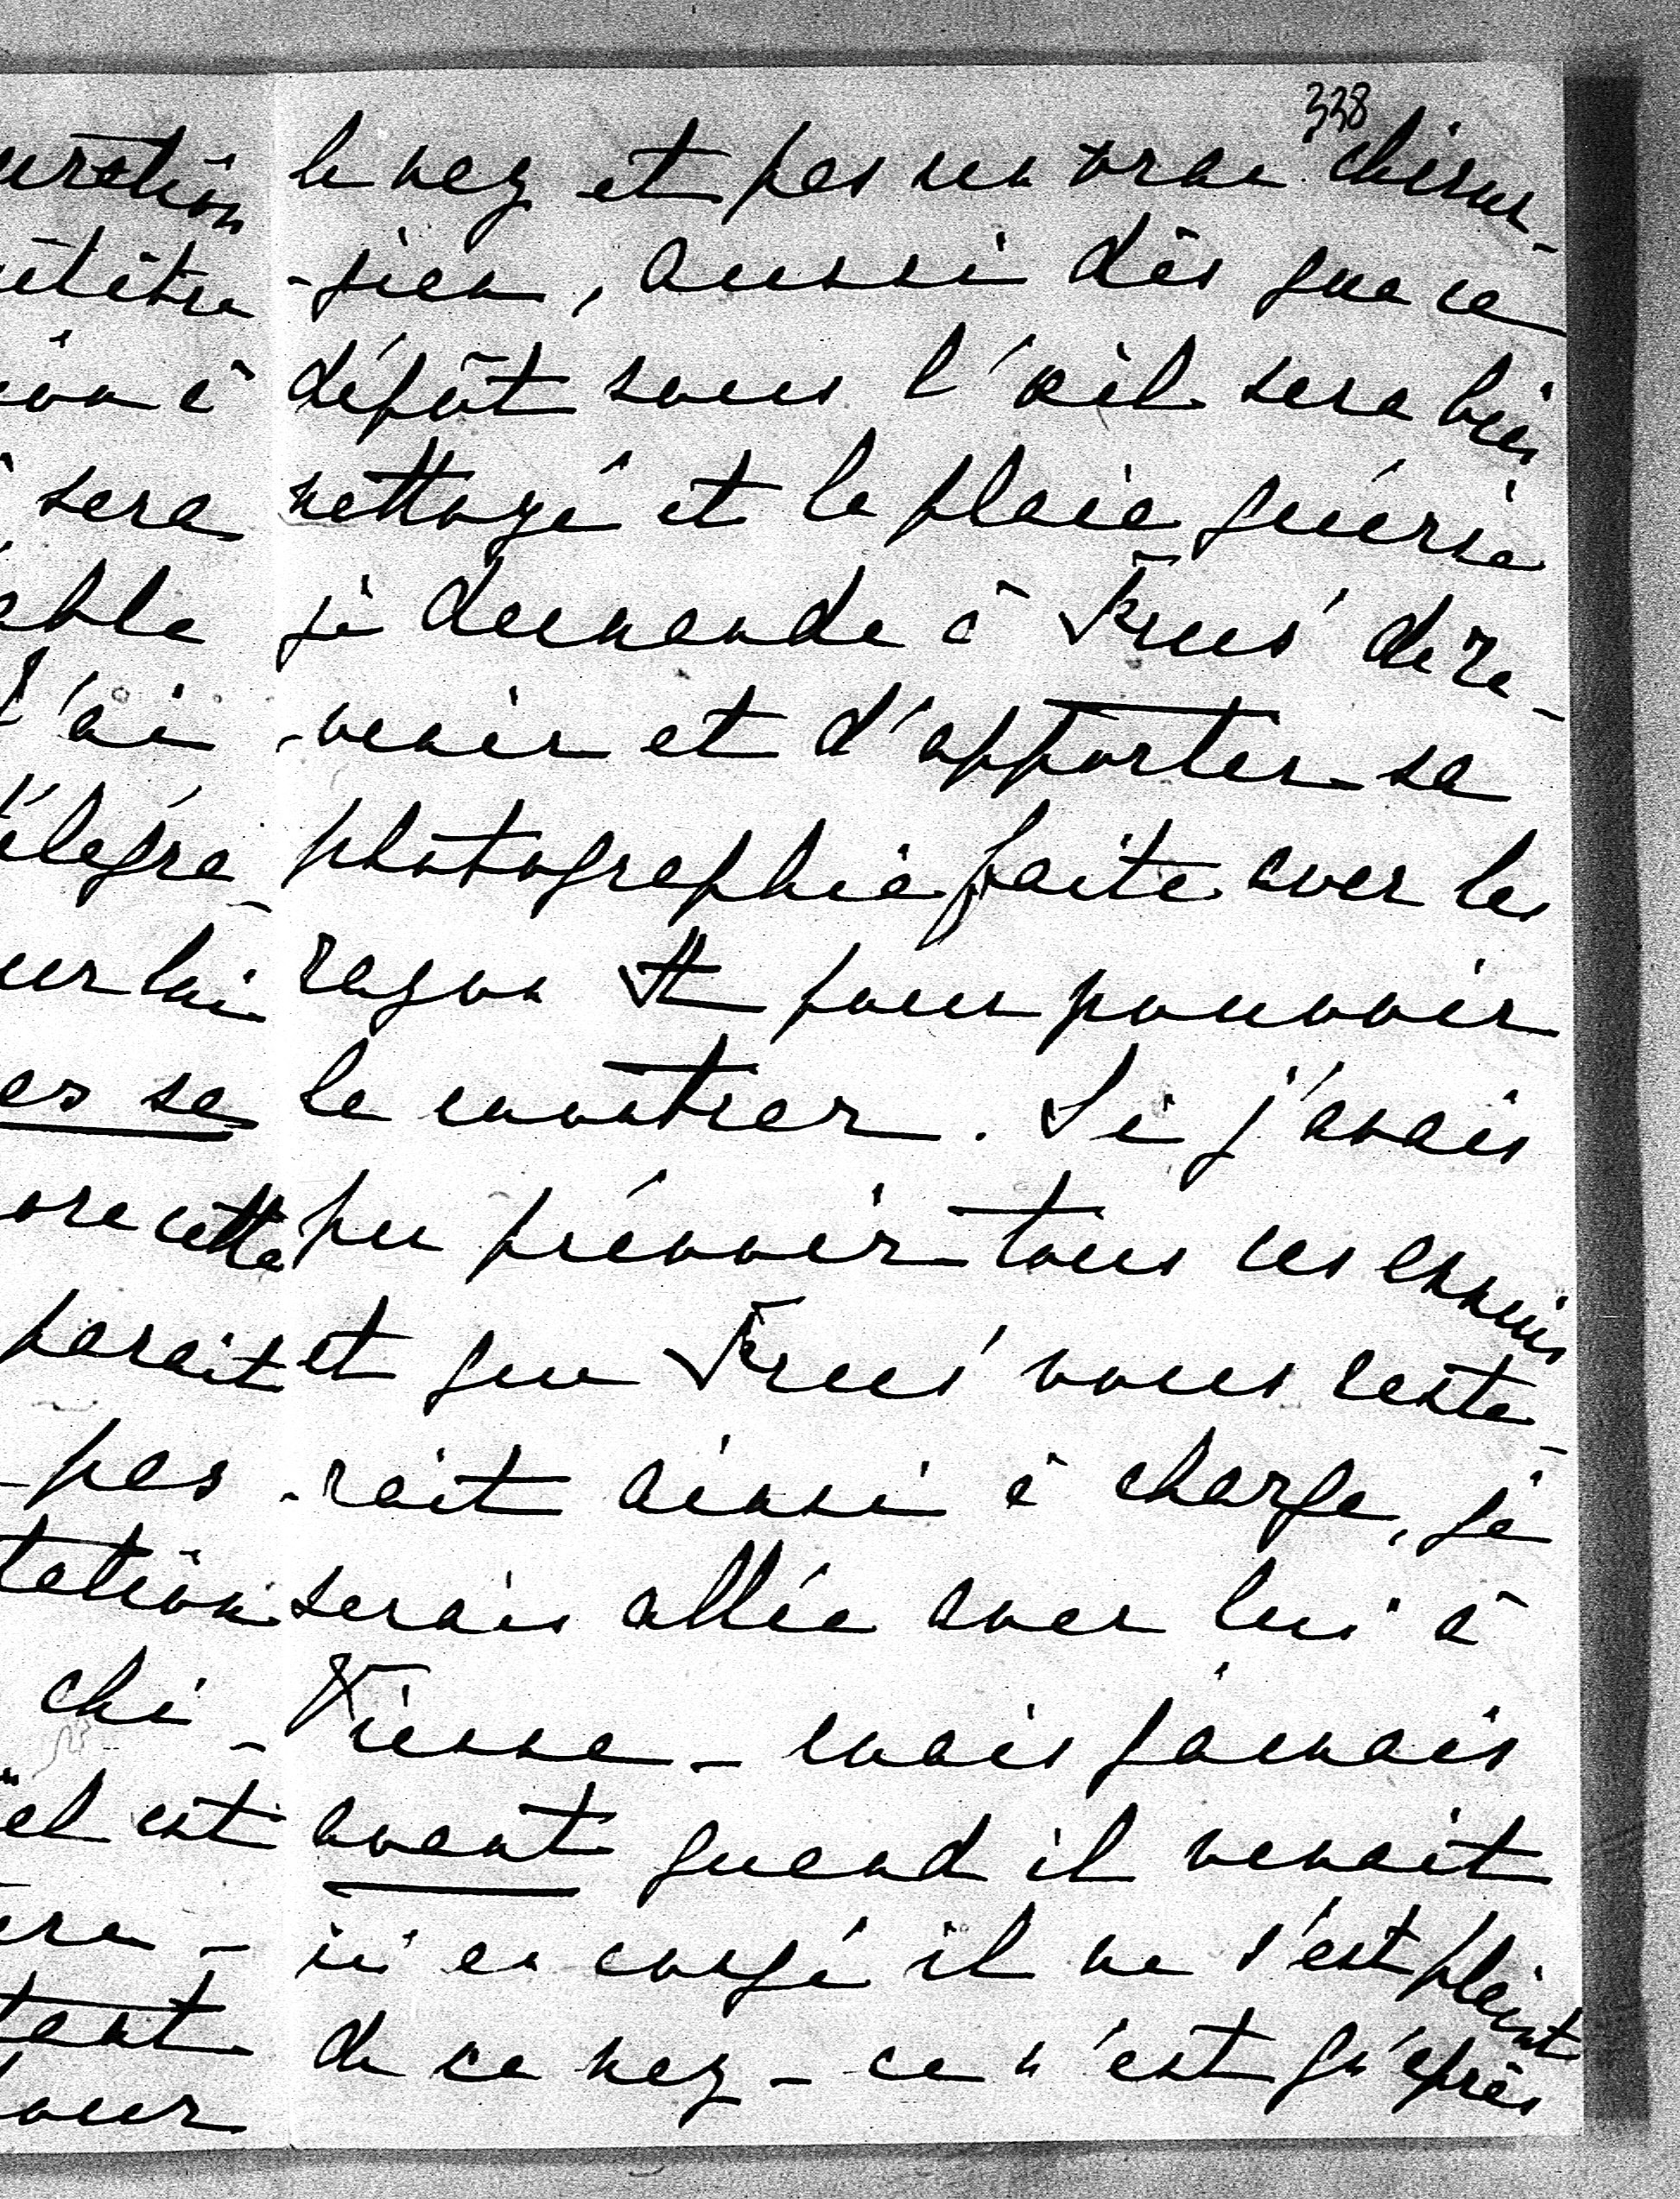 338
uration
utêtre
ion à
sera
able
l'ai
élégra-
ur lui
es se
ore cette
parait
pas
tation
chi-
el est
tant
our
le nez et pas un vrai chirur-
-gien, aussi dès que ce
dépôt sous l'œil sera bien
nettoyé et la plaie guérie
je demande à de re-
-venir et d'apporter sa
photographie faite avec les
rayon pour pouvoir
le montrer. Si j'avais
pu prévoir tous ces ennuis
et que nous reste-
-rait ainsi à charge, je
serais allée avec lui à
Vienne - mais jamais
avant quand il venait
ici en congé il ne s'est plaint
de ce nez - ce n'est qu'après